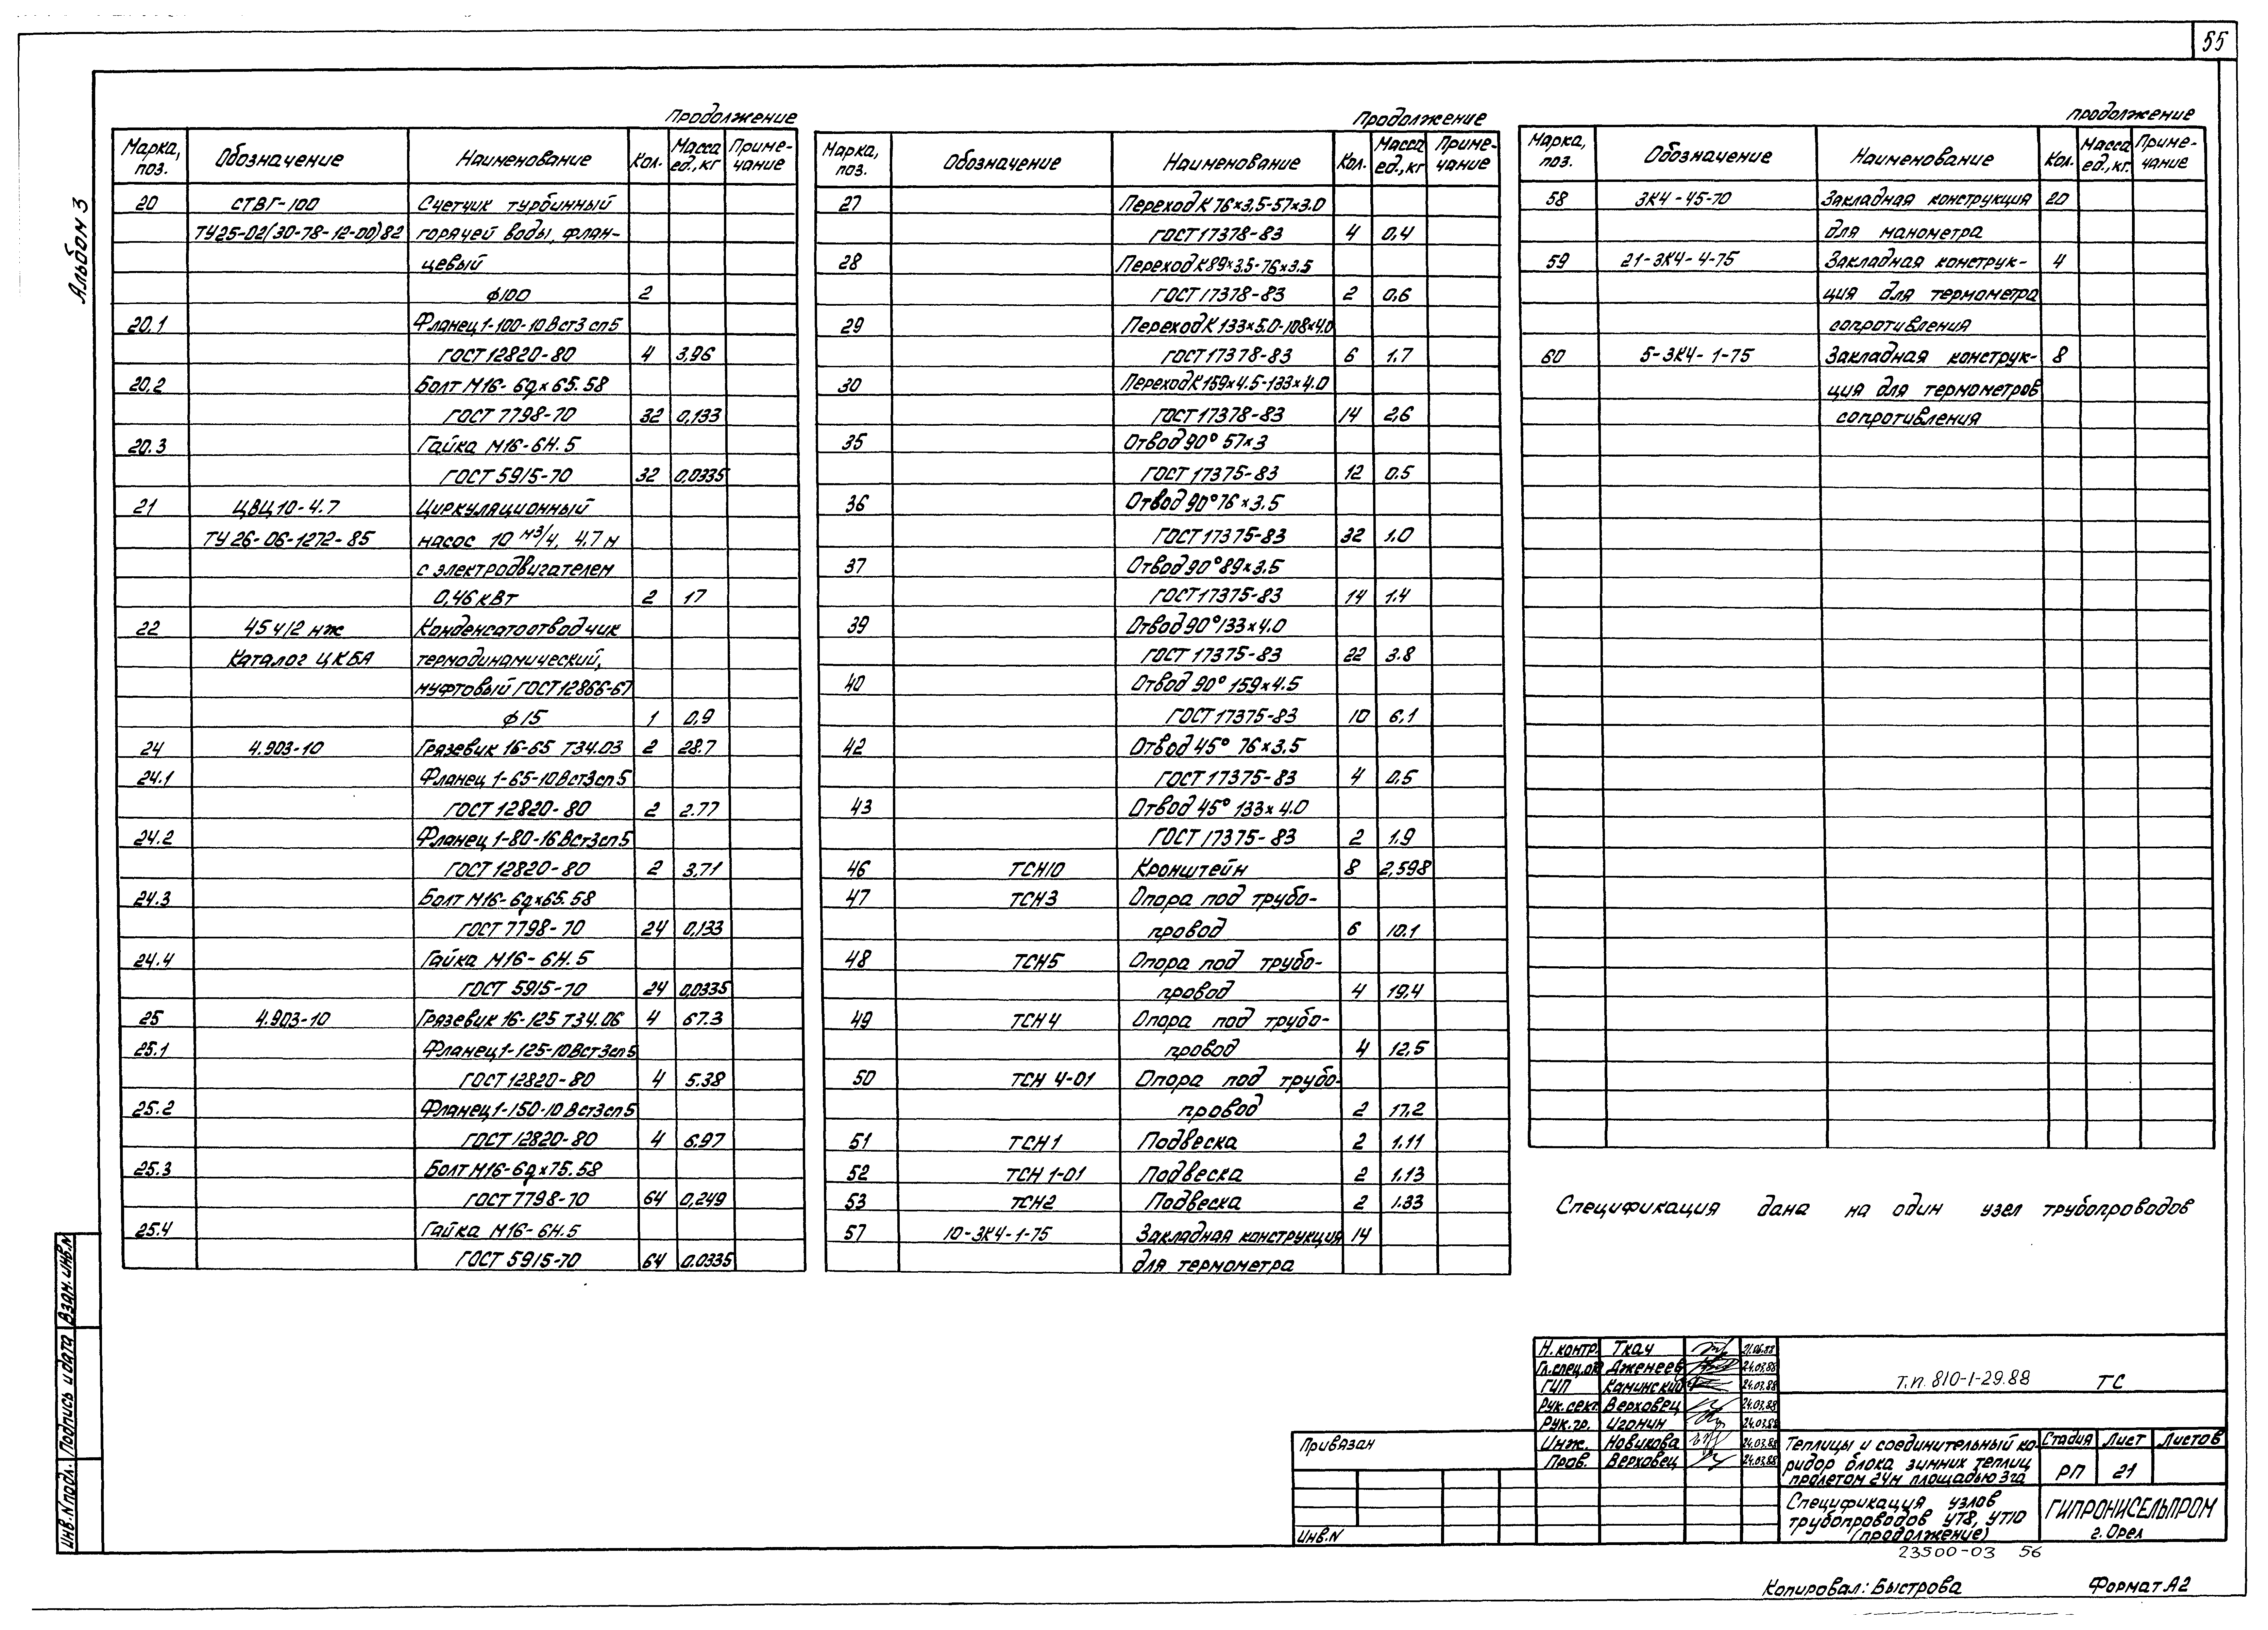 55
Альбом 3
Продолжение
Марка, поз. Обозначение Наименование Кол. Масса ед., кг Приме-чание
20 СТВГ-100 Счетчик турбинный
ТУ25-02(30-78-12-00)82 горячей воды, флан-
цевый
ф100 2
20.1 Фланец 1-100-10 Вст3сп5
ГОСТ 12820-80 4 3,96
20.2 Болт М16-6gх65.58
ГОСТ 7798-70 32 0,133
20.3 Гайка М16-6Н.5
ГОСТ 5915-70 32 0,0335
21 ЦВЦ10-4.7 Циркуляционный
ТУ 26-06-1272-85 насос 10 м3/ч, 4.7м
с электродвигателем
0,46 кВт 2 17
22 45ч12нж Конденсатоотводчик
Каталог ЦКБА термодинамический,
муфтовый ГОСТ12866-67
ф15 1 0,9
24 4.903-10 Грязевик 16-65 Т34.03 2 28.7
24.1 Фланец 1-65-10Вст3сп5
ГОСТ 12820-80 2 2.77
24.2 Фланец 1-80-16Вст3сп5
ГОСТ 12820-80 2 3,71
24.3 Болт М16-6gх65.58
ГОСТ 7798-70 24 0,133
24.4 Гайка М16-6Н.5
ГОСТ 5915-70 24 0,0335
25 4.903-10 Грязевик 16-125 Т34.06 4 67.3
25.1 Фланец 1-125-10Вст3сп5
ГОСТ 12820-80 4 5.38
25.2 Фланец 1-150-10Вст3сп5
ГОСТ 12820-80 4 6,97
25.3 Болт М16-6gх75.58
ГОСТ 7798-70 64 0,249
25.4 Гайка М16-6Н.5
ГОСТ 5915-70 64 0.0335
Продолжение
Марка, поз. Обозначение Наименование Кол. Масса ед., кг Приме-чание
27 Переход К 76х3,5-57х3.0
ГОСТ 17378-83 4 0,4
28 Переход К89х3.5-76х3.5
ГОСТ 17378-83 2 0,6
29 Переход К 133х5.0-108х4.0
ГОСТ 17378-83 6 1.7
30 Переход К159х4.5-133х4.0
ГОСТ 17378-83 14 2,6
35 Отвод 90° 57х3
ГОСТ 17375-83 12 0.5
36 Отвод 90° 76х3.5
ГОСТ 17375-83 32 1.0
37 Отвод 90° 89х3.5
ГОСТ 17375-83 14 1.4
39 Отвод 90° 133х4.0
ГОСТ 17375-83 22 3.8
40 Отвод 90° 159х4.5
ГОСТ 17375-83 10 6,1
42 Отвод 45° 76х3,5
ГОСТ 17375-83 4 0,5
43 Отвод 45° 133х4.0
ГОСТ 17375-83 2 1.9
46 ТСН10 Кронштейн 8 2,598
47 ТСН3 Опора под трубо-
провод 6 10.1
48 ТСН5 Опора под трубо-
провод 4 19,4
49 ТСН4 Опора под трубо-
провод 4 12,5
50 ТСН 4-01 Опора под трубо-
провод 2 17,2
51 ТСН1 Подвеска 2 1.11
52 ТСН 1-01 Подвеска 2 1.13
53 ТСН2 Подвеска 2 1.33
57 10-ЗК4-1-75 Закладная конструкция 14
для термометра
продолжение
Марка, поз. Обозначение Наименование Кол. Масса ед., кг. Приме-чание
58 ЗК4-45-70 Закладная конструкция 20
для манометра
59 21-ЗК4-4-75 Закладная конструк- 4
ция для термометра
сопротивления
60 5-ЗК4-1-75 Закладная конструк- 8
ция для термометров
сопротивления
Спецификация дана на один узел трубопроводов
Взам. инв.N
Подпись и дата
Инв.N подл.
Н.контр. Ткач 21.06.88
Гл.спец.от Дженеев 24.03.88
ГИП Каминский 24.03.88
Рук.сект. Верховец 24.03.88
Рук.гр. Игонин 24.03.88
Инж. Новикова 24.03.88
Пров. Верховец 24.03.88
Привязан
Инв.N
Т.п. 810-1-29.88 ТС
Теплицы и соединительный ко-
ридор блока зимних теплиц
пролетом 24м площадью 3га
Стадия Лист Листов
РП 21
Спецификация узлов
трубопроводов УТ8, УТ10
(продолжение)
ГИПРОНИСЕЛЬПРОМ
г. Орел
23500-03 56
Копировал: Быстрова Формат А2